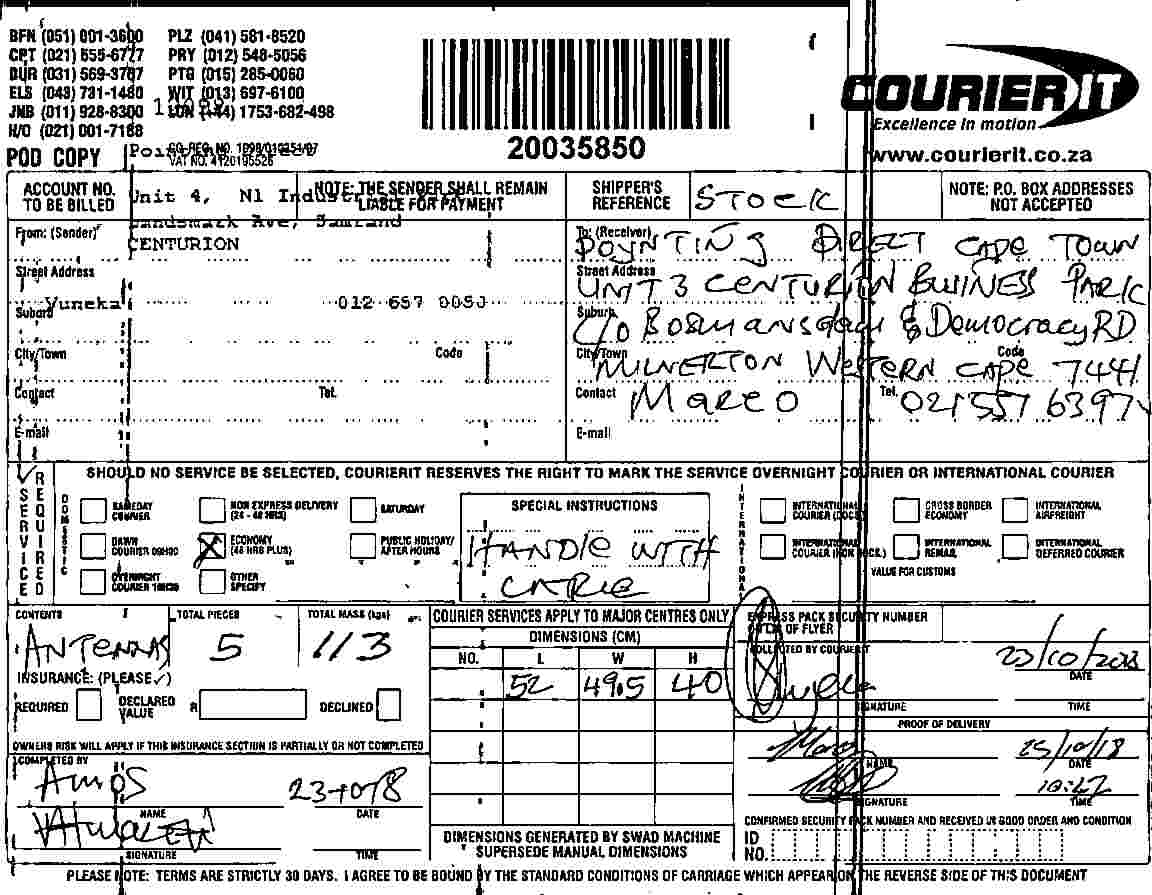 BFN (051) 001-3600 PLZ (041) 581-8520
CPT (021) 555-6777 PRY (012) 548-5056
DUR (031) 569-3787 PTG (015) 285-0060
ELS (043) 731-1480 WIT (013) 697-6100
JNB (011) 928-8300 LON (+44) 1753-682-498
H/O (021) 001-7188
POD COPY
VAT NO. 4120195526
20035850
COURIER IT
Excellence in motion
www.courierit.co.za
ACCOUNT NO. TO BE BILLED
NOTE: THE SENDER SHALL REMAIN LIABLE FOR PAYMENT
SHIPPER'S REFERENCE
STOCK
NOTE: P.O. BOX ADDRESSES NOT ACCEPTED
Unit 4, N1
CENTURION
From: (Sender)
Street Address
Suburb Yuneka 012 657 0050
City/Town Code
Contact Tel.
E-mail
To: (Receiver) POYNTING DIRECT CAPE TOWN
Street Address UNIT 3 CENTURION BUSINESS PARK
Suburb C/O BOSMANSDAM & DEMOCRACY RD
City/Town MILNERTON WESTERN CAPE Code 7441
Contact MARCO Tel. 021 557 6397
E-mail
SERVICE REQUIRED
SHOULD NO SERVICE BE SELECTED, COURIERIT RESERVES THE RIGHT TO MARK THE SERVICE OVERNIGHT COURIER OR INTERNATIONAL COURIER
DOMESTIC
SAMEDAY COURIER
NON EXPRESS DELIVERY (24 - 48 HRS)
SATURDAY
DAWN COURIER 09H00
ECONOMY (48 HRS PLUS)
PUBLIC HOLIDAY/ AFTER HOURS
OVERNIGHT COURIER 10H30
OTHER SPECIFY
SPECIAL INSTRUCTIONS
HANDLE WITH
CARE
INTERNATIONAL
INTERNATIONAL COURIER (DOCS)
CROSS BORDER ECONOMY
INTERNATIONAL AIRFREIGHT
INTERNATIONAL COURIER (NON DOC.)
INTERNATIONAL REMAIL
INTERNATIONAL DEFERRED COURIER
VALUE FOR CUSTOMS
CONTENTS
ANTENNAS
TOTAL PIECES
5
TOTAL MASS (kgs)
113
INSURANCE: (PLEASE ✓)
REQUIRED
DECLARED VALUE R
DECLINED
OWNERS RISK WILL APPLY IF THIS INSURANCE SECTION IS PARTIALLY OR NOT COMPLETED
COMPLETED BY
AMOS
NAME
DATE
SIGNATURE
TIME
COURIER SERVICES APPLY TO MAJOR CENTRES ONLY
DIMENSIONS (CM)
NO. L W H
52 49.5 40
DIMENSIONS GENERATED BY SWAD MACHINE
SUPERSEDE MANUAL DIMENSIONS
EXPRESS PACK SECURITY NUMBER
OF FLYER
COLLECTED BY COURIERIT
23/10/2018
DATE
SIGNATURE TIME
PROOF OF DELIVERY
25/10/18
NAME DATE
10:27
SIGNATURE TIME
CONFIRMED SECURITY PACK NUMBER AND RECEIVED IN GOOD ORDER AND CONDITION
ID NO.
PLEASE NOTE: TERMS ARE STRICTLY 30 DAYS. I AGREE TO BE BOUND BY THE STANDARD CONDITIONS OF CARRIAGE WHICH APPEAR ON THE REVERSE SIDE OF THIS DOCUMENT